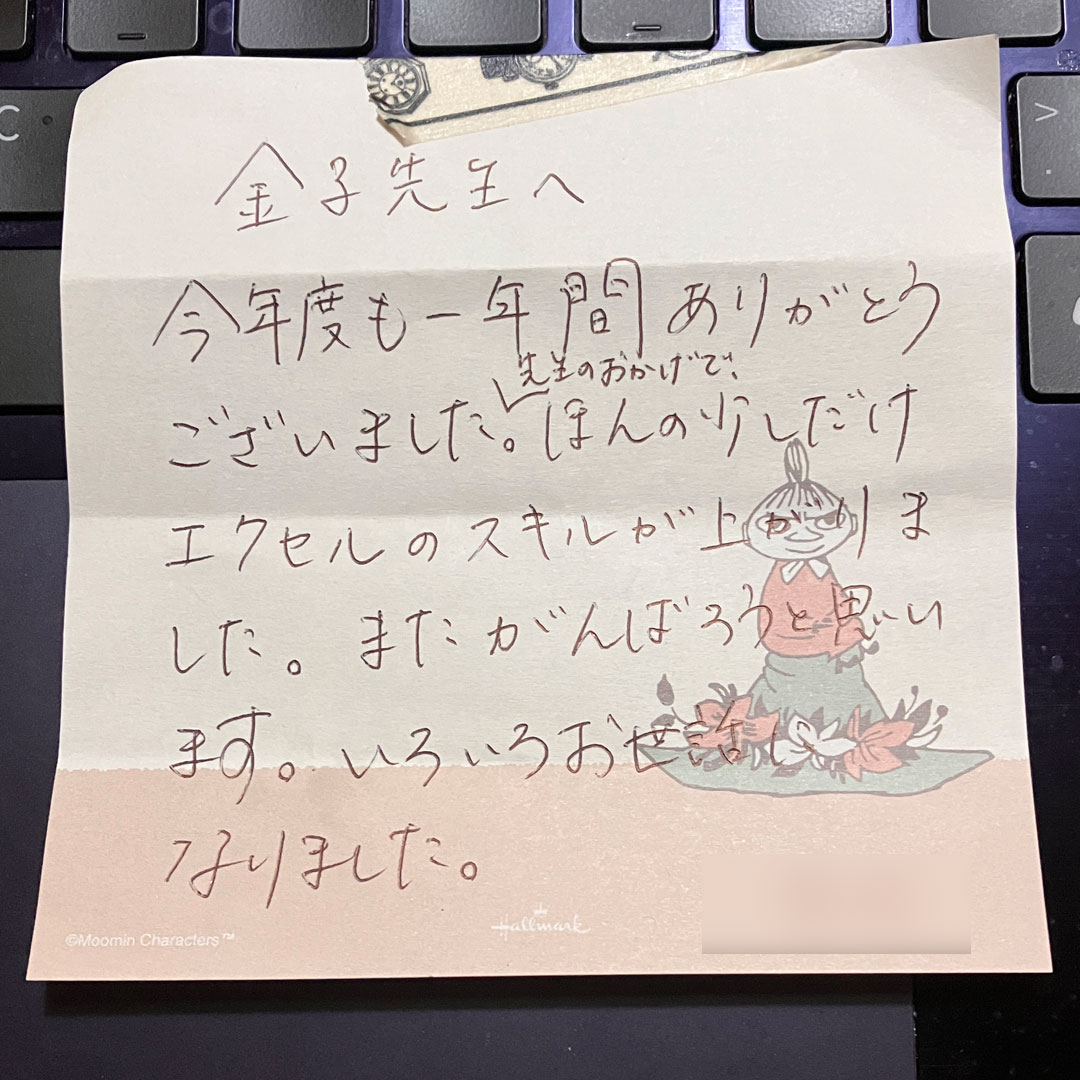 金子先生へ
今年度も一年間ありがとう
先生のおかげで、
ございました。ほんの少しだけ
エクセルのスキルが上がりま
した。またがんばろうと思い
ます。いろいろお世話に
なりました。
©Moomin Characters™
Hallmark
C
>